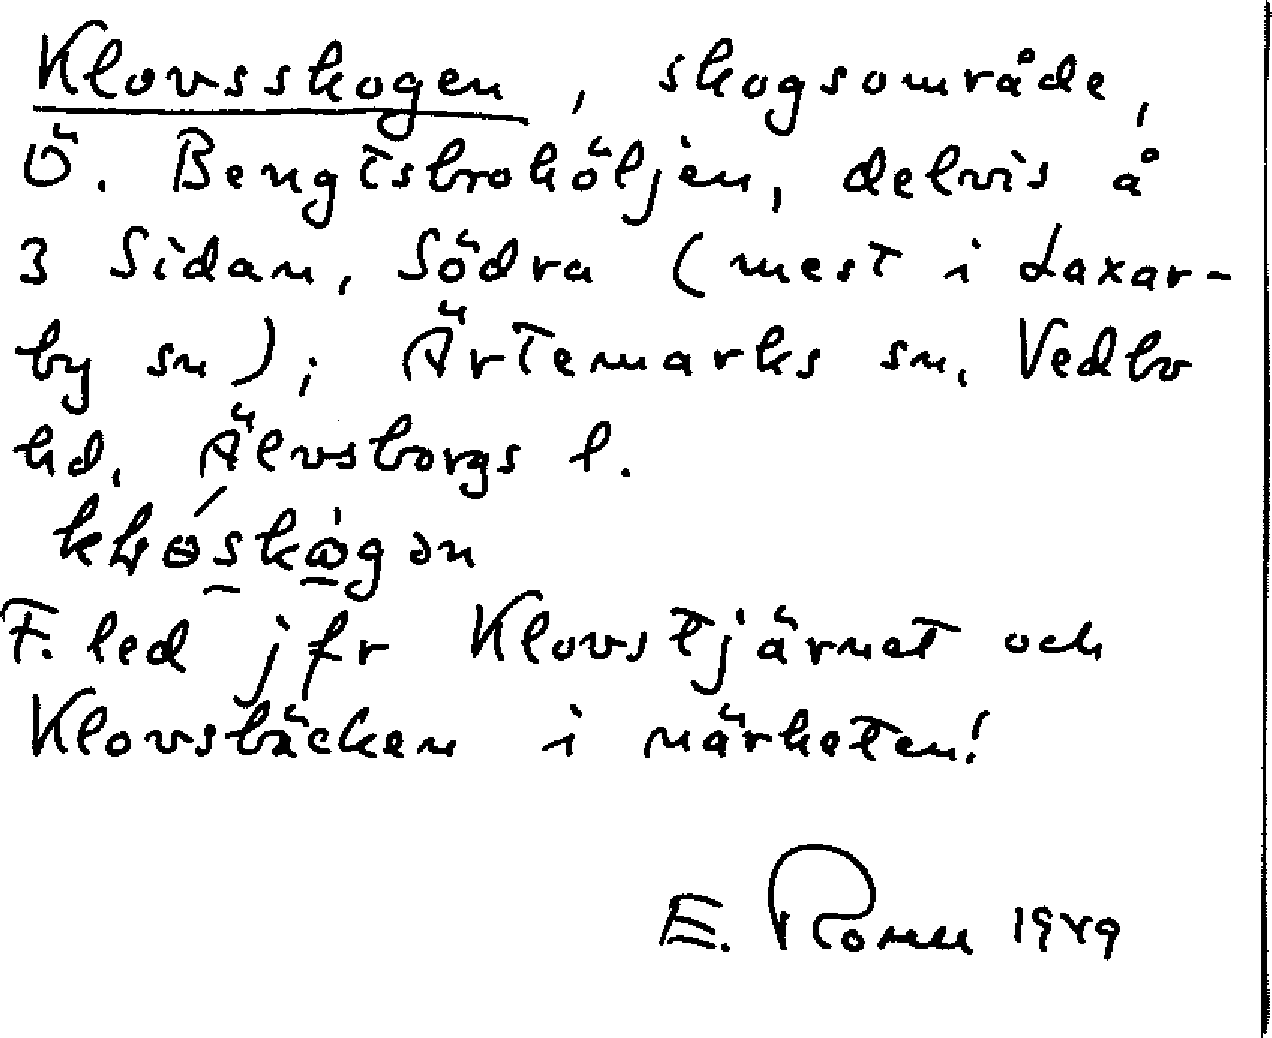 Klovsskogen, skogsområde,
Ö. Bengtsbrohöljen, delvis å
3 Sidan, Södra (mest i Laxar-
by sn); Ärtemarks sn, Vedbo
hd, Älvsborgs l.
F. led jfr Klovstjärnet och
Klovsbäcken i närheten!
E. Rosell 1949